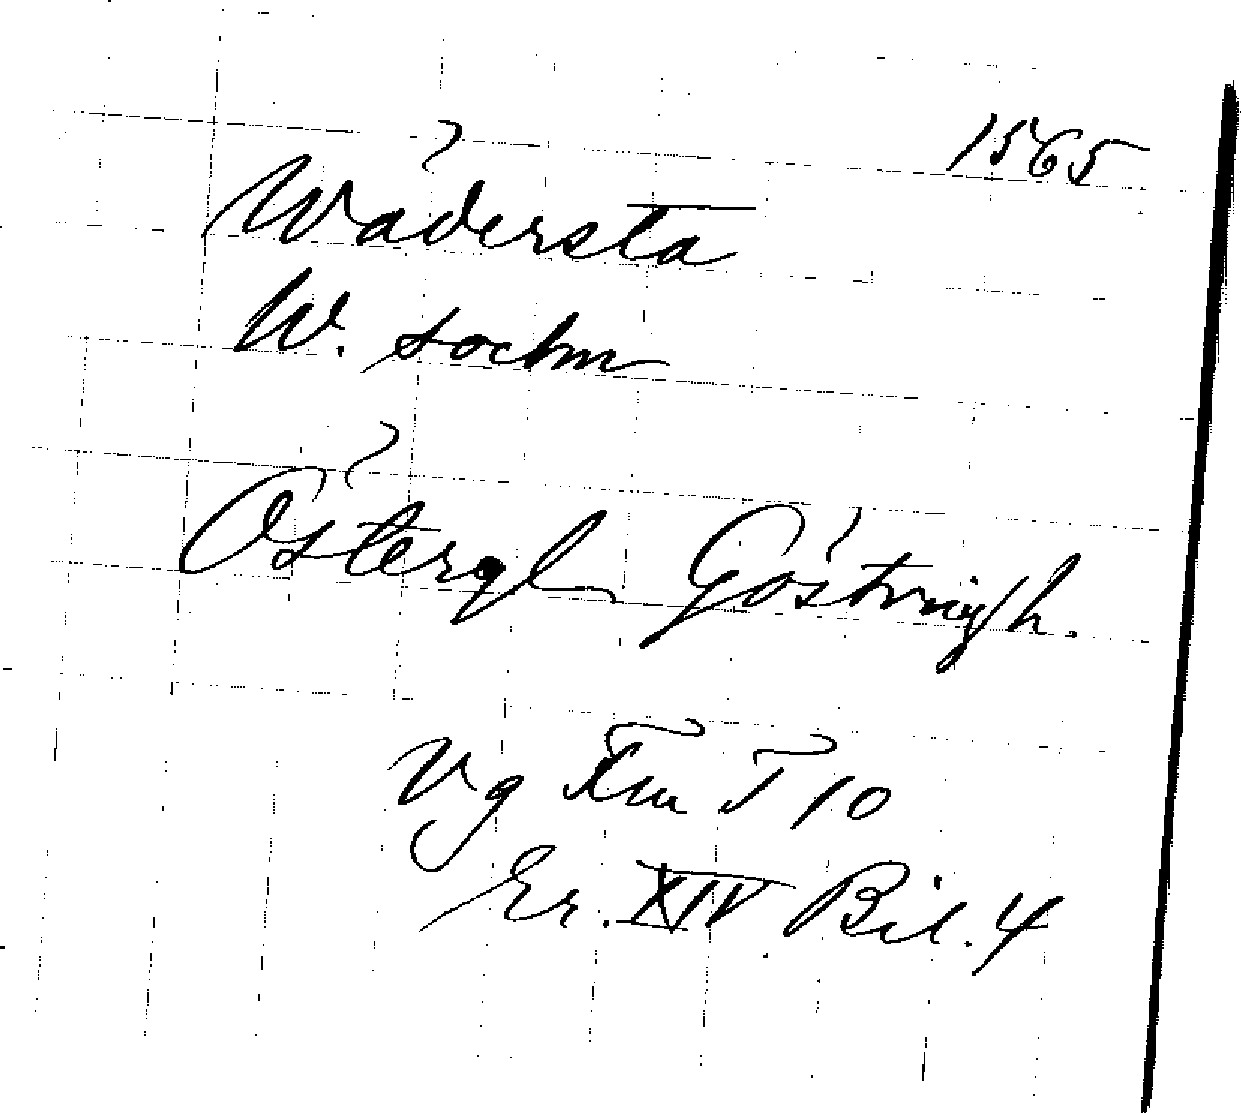 1565
Wädersta
W. sochn
Östergl Göstringh.
Vg Fm T 10
Er. XIV Bil. 4